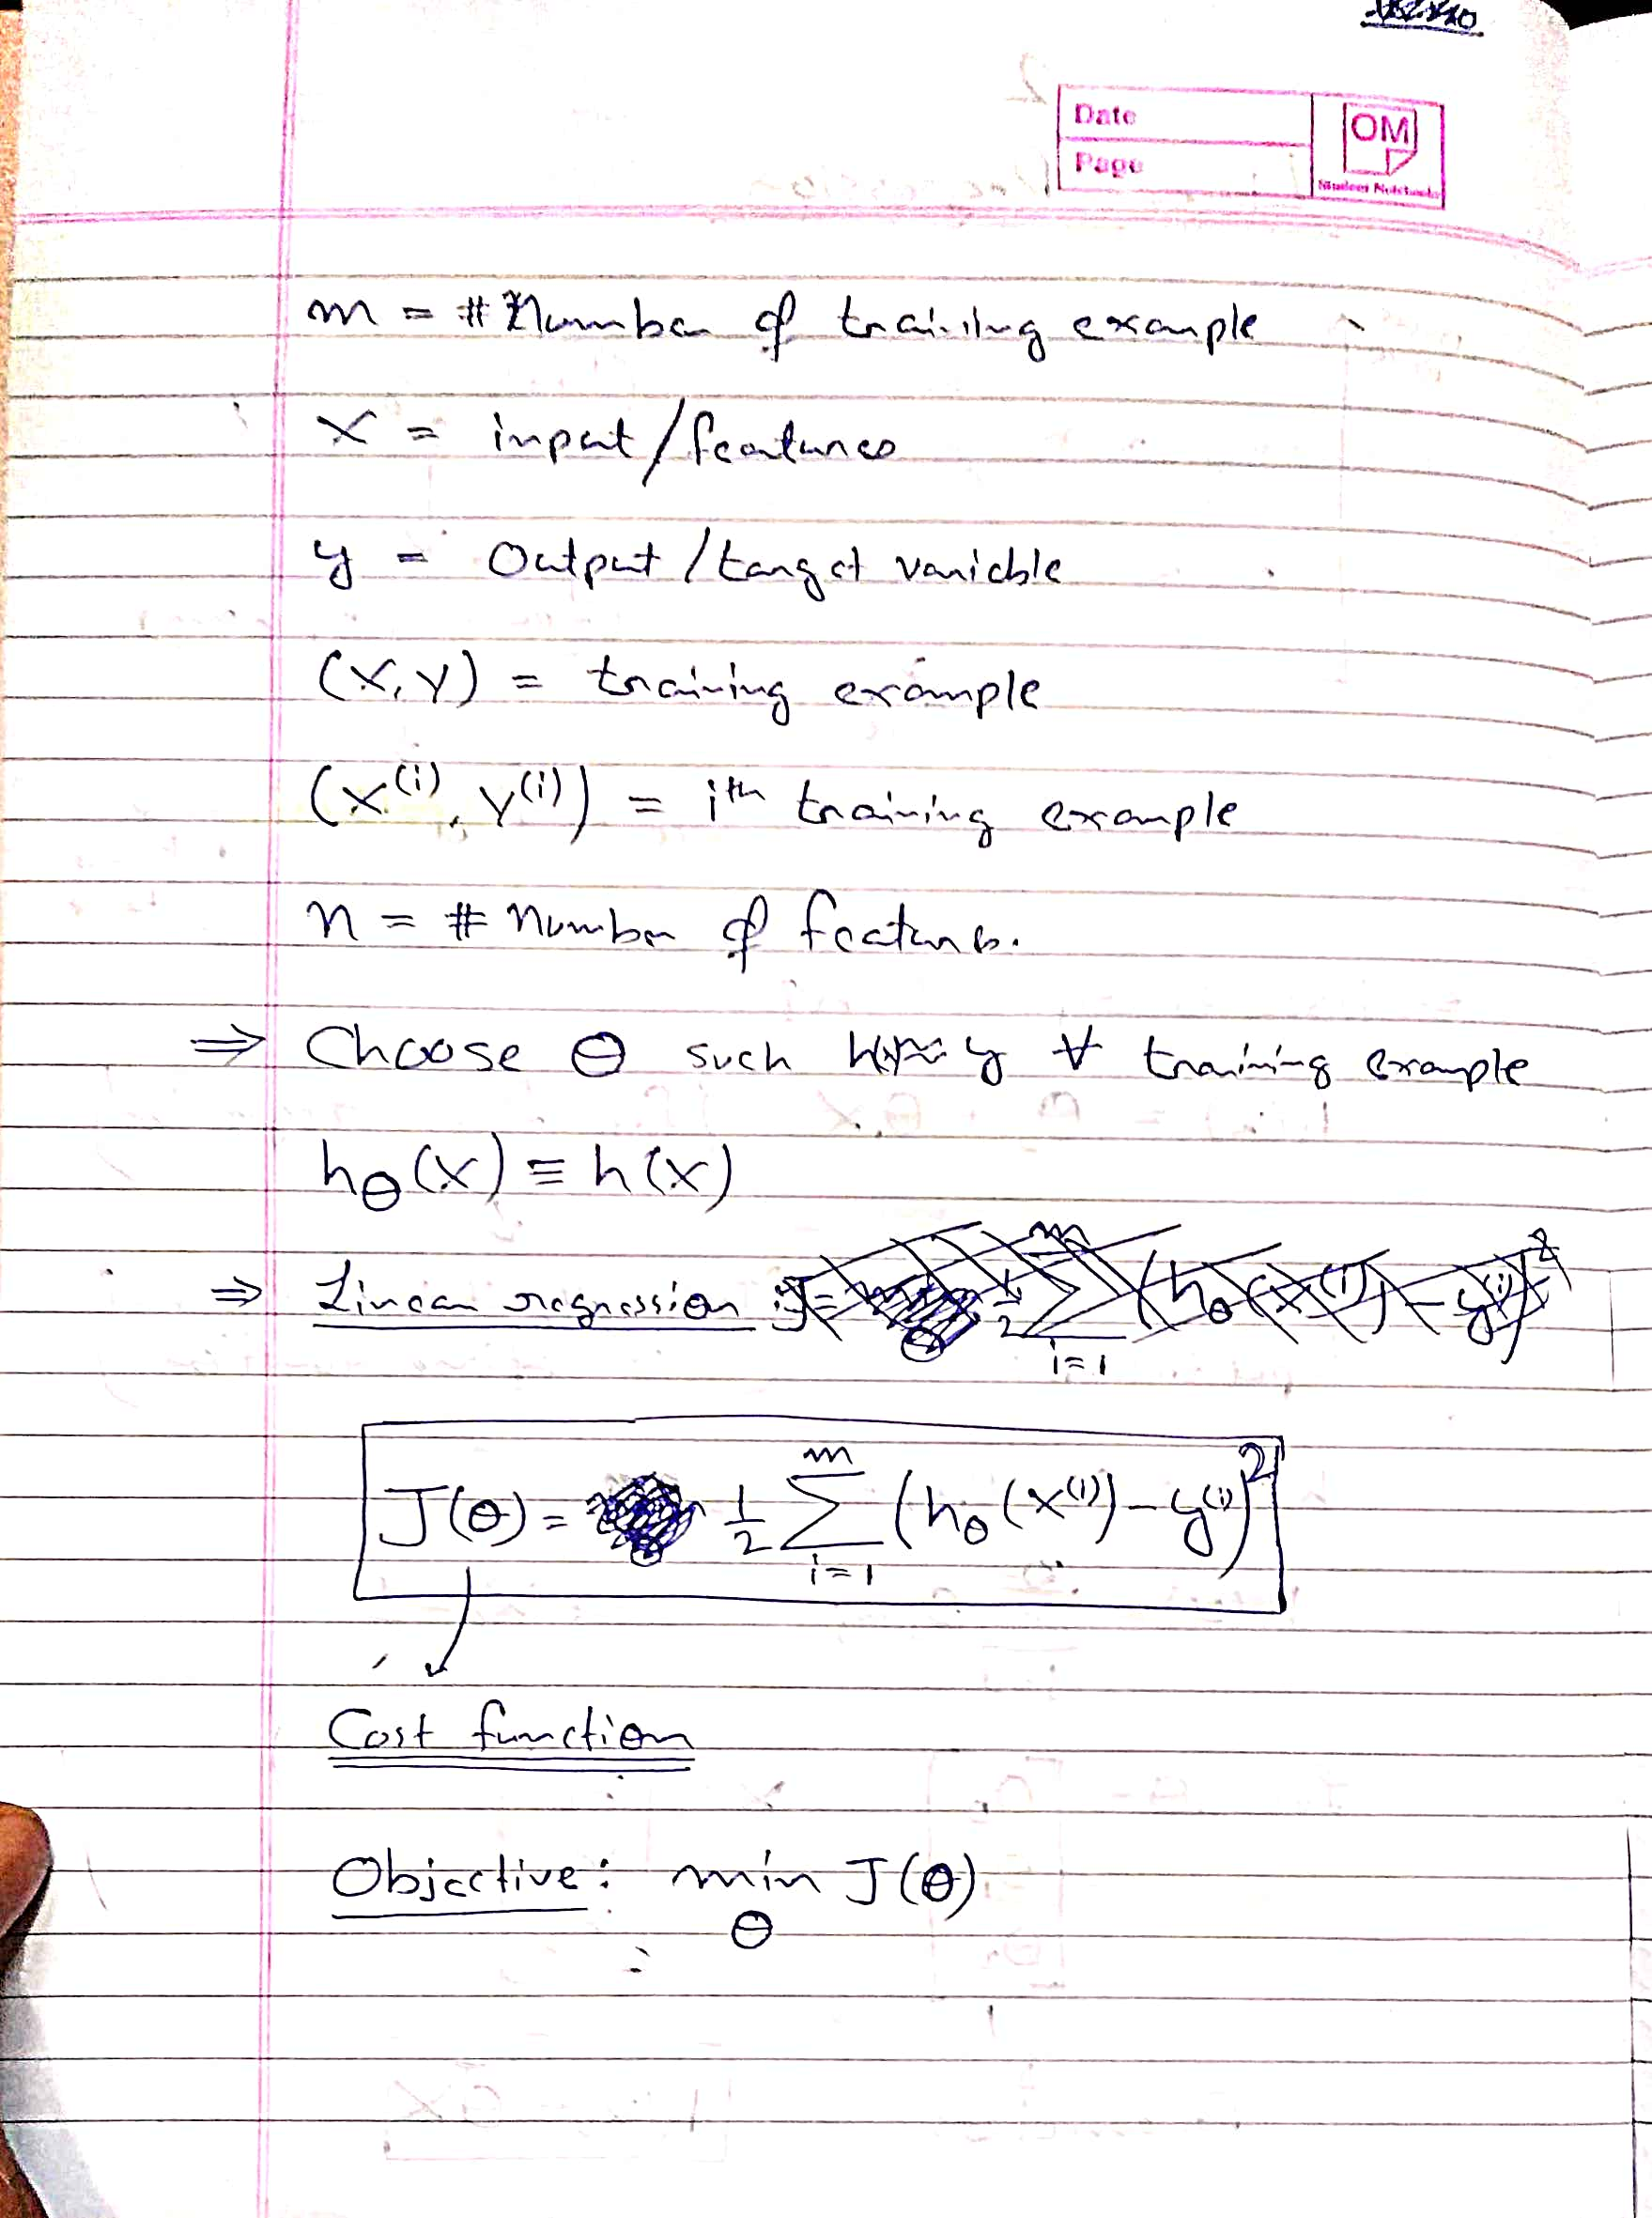 Date
Page
OM
m = # Number of training example
x = input/features
y = Output / target variable
(x, y) = training example
(x⁽ⁱ⁾, y⁽ⁱ⁾) = iᵗʰ training example
n = # number of features.
⇒ Choose θ such h(x) ≈ y ∀ training example
h_θ(x) ≡ h(x)
⇒ Linear regression
J(θ) = 1/2 ∑_{i=1}^{m} (h_θ(x⁽ⁱ⁾) - y⁽ⁱ⁾)²
Cost function
Objective: min_θ J(θ)